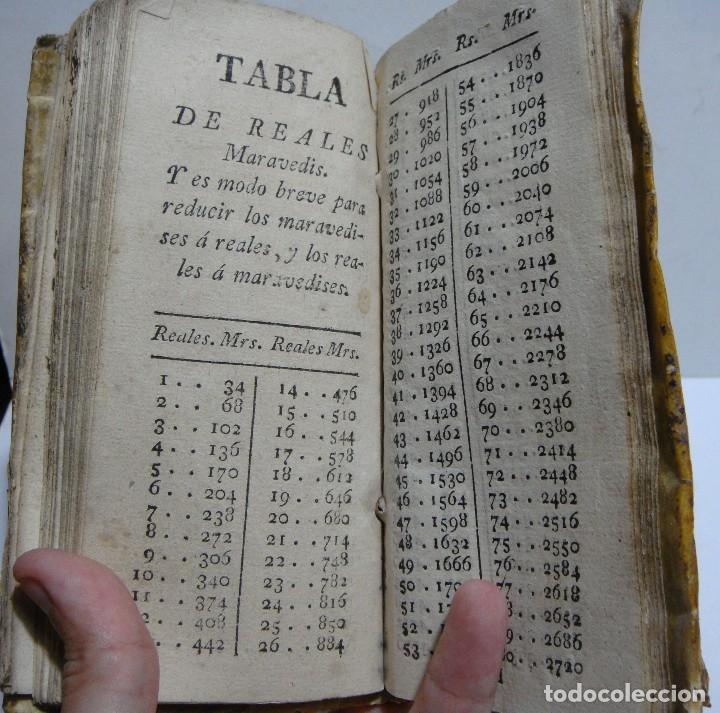 TABLA
DE REALES
Maravedis.
Y es modo breve para
reducir los maravedi-
ses á reales, y los rea-
les á maravedises.
Reales. Mrs. Reales Mrs.
1 . . 34 14 . . 476
2 . . 68 15 . . 510
3 . . 102 16 . . 544
4 . . 136 17 . . 578
5 . . 170 18 . . 612
6 . . 204 19 . . 646
7 . . 238 20 . . 680
8 . . 272 21 . . 714
9 . . 306 22 . . 748
10 . . 340 23 . . 782
11 . . 374 24 . . 816
2 . . 408 25 . . 850
. . 442 26 . . 884
Rs. Mrs. Rs. Mrs.
27 . 918 54 . . 1836
28 . 952 55 . . 1870
29 . 986 56 . . 1904
30 . 1020 57 . . 1938
31 . 1054 58 . . 1972
32 . 1088 59 . . 2006
33 . 1122 60 . . 2040
34 . 1156 61 . . 2074
35 . 1190 62 . . 2108
36 . 1224 63 . . 2142
37 . 1258 64 . . 2176
38 . 1292 65 . . 2210
39 . 1326 66 . . 2244
40 . 1360 67 . . 2278
41 . 1394 68 . . 2312
42 . 1428 69 . . 2346
43 . 1462 70 . . 2380
44 . 1496 71 . . 2414
45 . 1530 72 . . 2448
46 . 1564 73 . . 2482
47 . 1598 74 . . 2516
48 . 1632 75 . . 2550
49 . 1666 76 . . 2584
50 . 170 77 . . 2618
51 . 1 8 . . 2652
52 . 9 . . 2686
53 0 . . 2720
todocoleccion